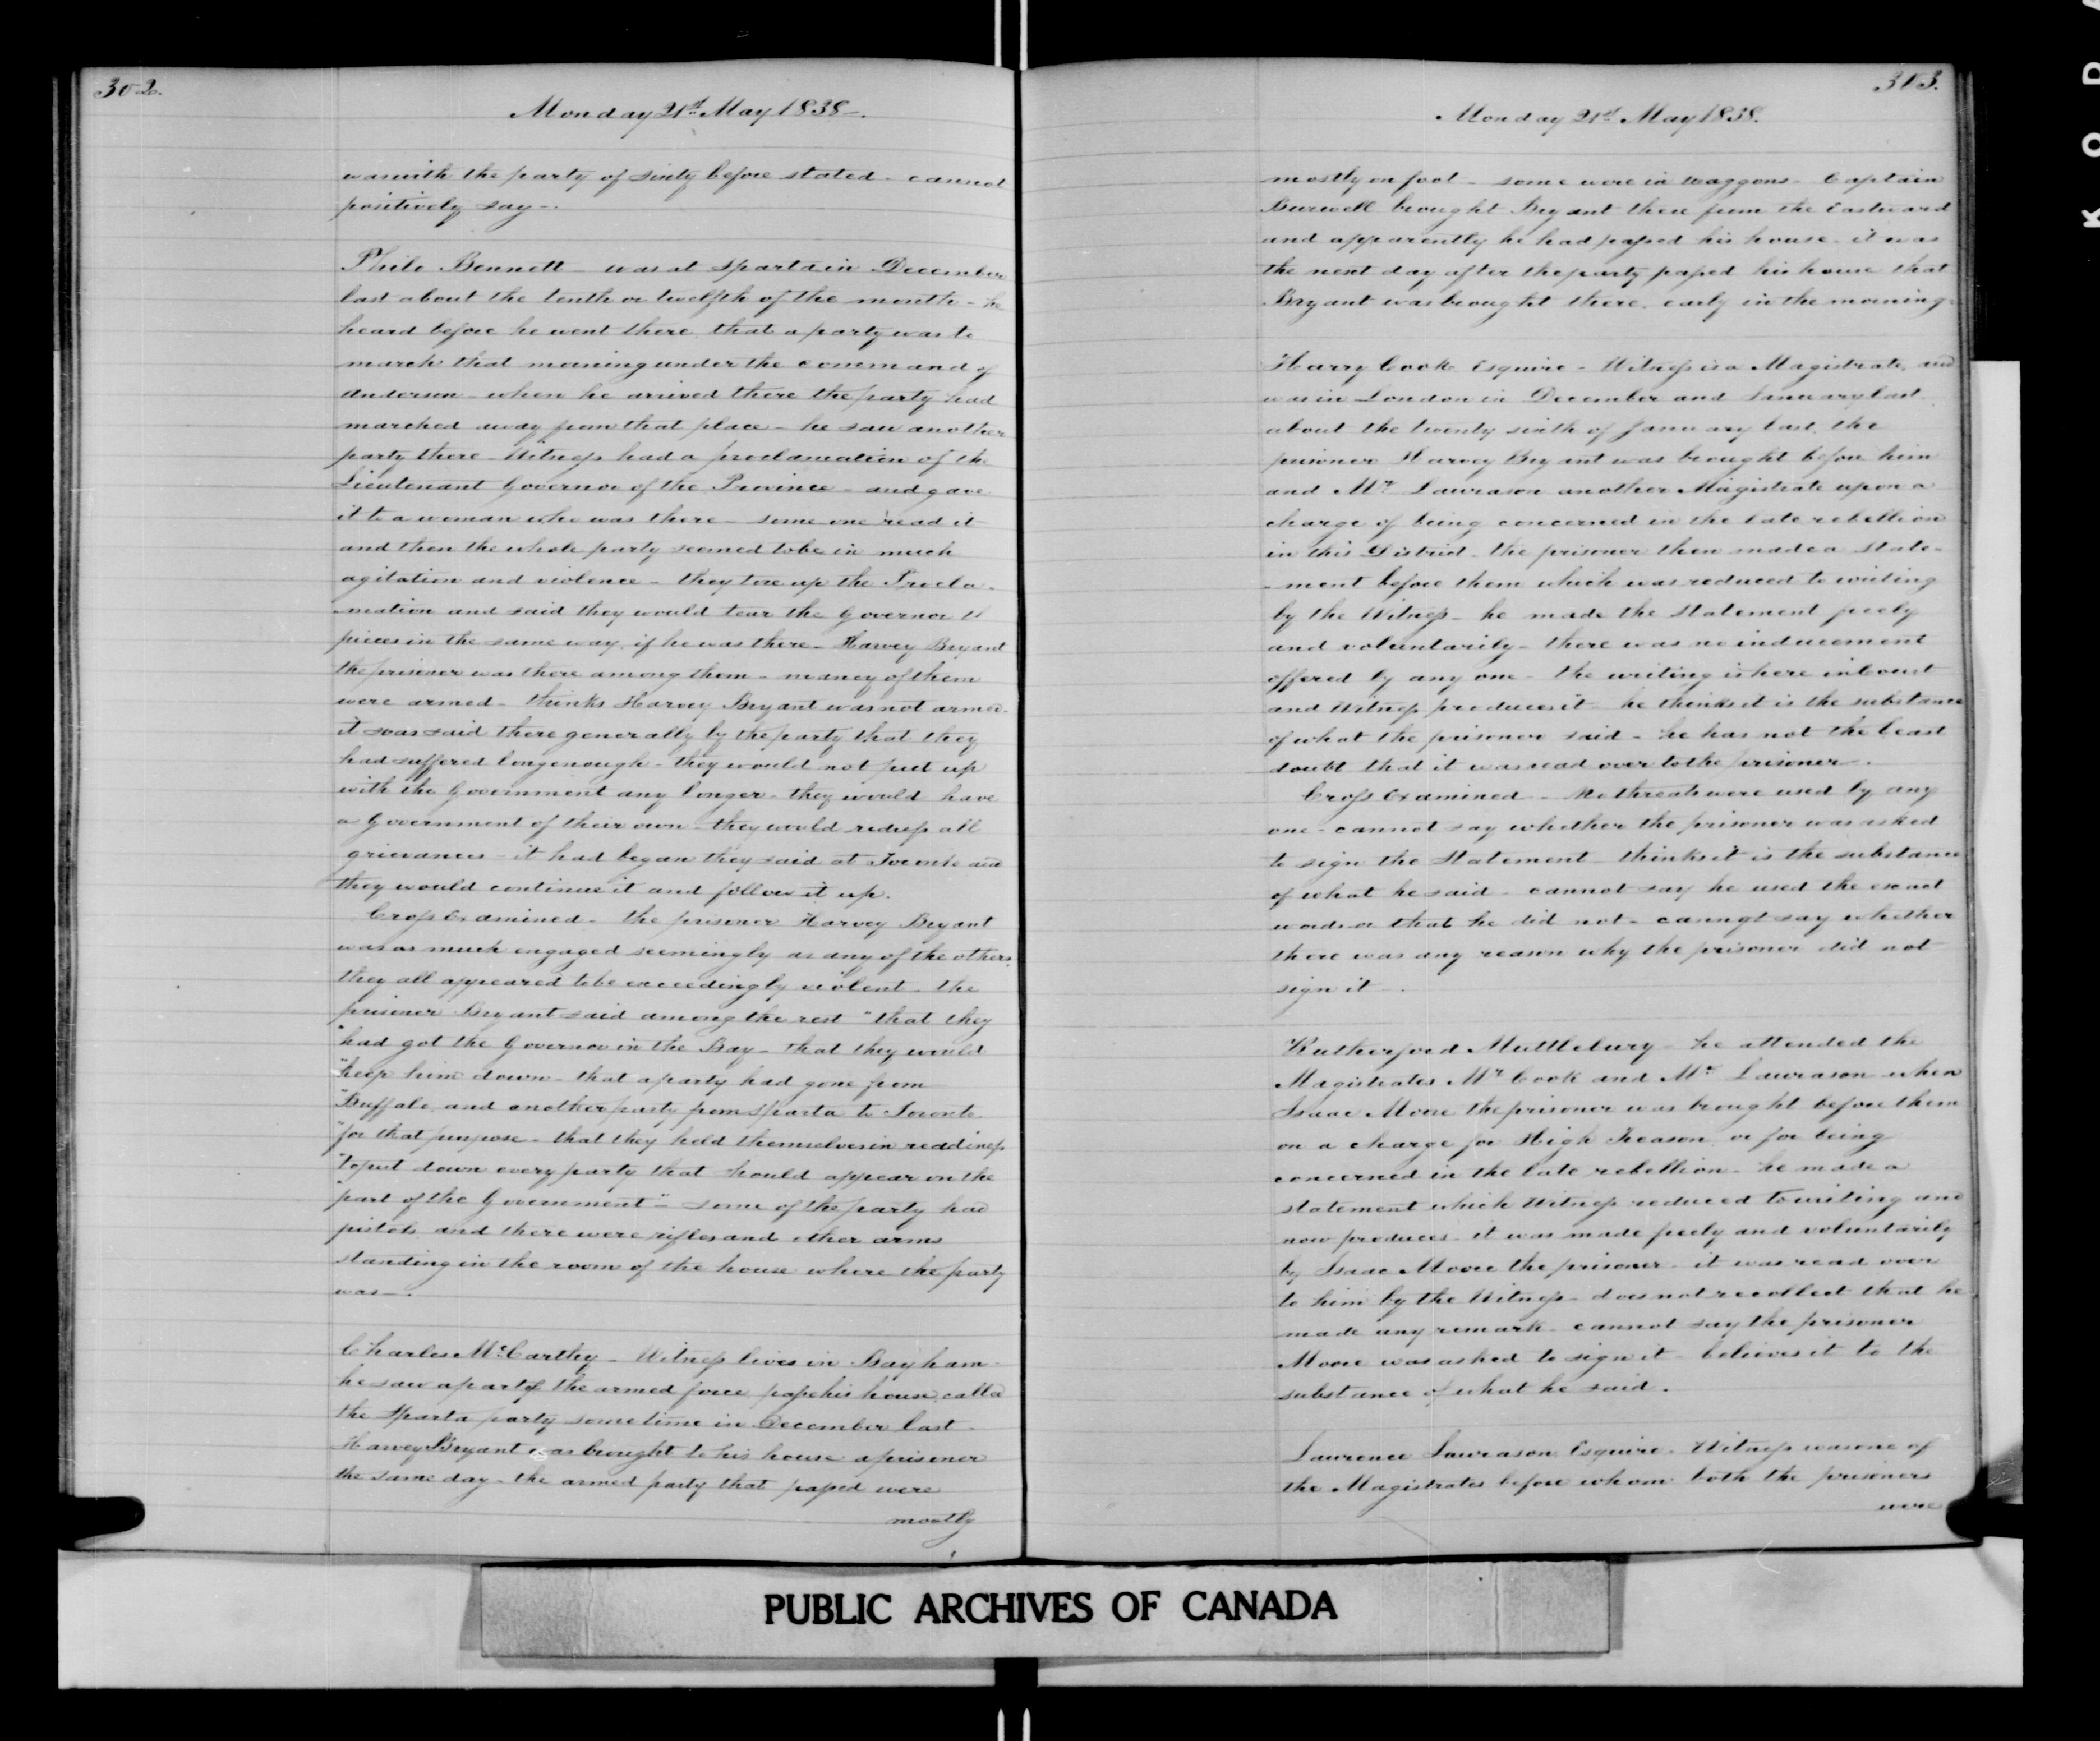 302.
Monday 21st May 1838 -.
was with the party of sixty before stated - cannot
positively say -.
Philo Bennett - was at Sparta in December
last about the tenth or twelfth of the month - he
heard before he went there that a party was to
march that morning under the command of
Anderson - when he arrived there the party had
marched away from that place - he saw another
party there - Witness had a proclamation of the
Lieutenant Governor of the Province - and gave
it to a woman who was there - some one read it
and then the whole party seemed to be in much
agitation and violence - they tore up the Procla-
-mation and said they would tear the Governor to
pieces in the same way, if he was there - Harvey Bryant
the prisoner was there among them - many of them
were armed - thinks Harvey Bryant was not armed -
it was said there generally by the party that they
had suffered long enough - they would not put up
with the Government any longer - they would have
a Government of their own - they would redress all
grievances - it had began they said at Toronto and
they would continue it and follow it up.
Cross Examined - the prisoner Harvey Bryant
was as much engaged seemingly as any of the others,
they all appeared to be exceedingly violent - the
prisoner Bryant said among the rest "that they
"had got the Governor in the Bay - that they would
"keep him down - that a party had gone from
"Buffalo, and another party from Sparta to Toronto
"for that purpose - that they held themselves in readiness
"to put down every party that should appear on the
"part of the Government" - some of the party had
pistols and there were rifles and other arms
standing in the room of the house where the party
was -.
Charles McCarthy - Witness lives in Bayham -
he saw a part of the armed force pass his house, called
the Sparta party some time in December last -
Harvey Bryant was brought to his house a prisoner
the same day - the armed party that passed were
mostly
303.
Monday 21st May 1838.
mostly on foot - some were in waggons - Captain
Burwell brought Bryant there from the Eastward
and apparently he had passed his house - it was
the next day after the party passed his house that
Bryant was brought there, early in the morning -
Harry Cook Esquire - Witness is a Magistrate, and
was in London in December and January last -
about the twenty sixth of January last, the
prisoner Harvey Bryant was brought before him
and Mr. Lawrason another Magistrate upon a
charge of being concerned in the late rebellion
in this District - the prisoner then made a state-
-ment before them which was reduced to writing
by the Witness - he made the statement freely
and voluntarily - there was no inducement
offered by any one - the writing is here in Court
and Witness produces it - he thinks it is the substance
of what the prisoner said - he has not the least
doubt that it was read over to the prisoner -.
Cross Examined - No threats were used by any
one - cannot say whether the prisoner was asked
to sign the Statement - thinks it is the substance
of what he said - cannot say he used the exact
words or that he did not - cannot say whether
there was any reason why the prisoner did not
sign it -.
Rutherford Muttlebury - he attended the
Magistrates Mr Cook and Mr Lawrason when
Isaac Moore the prisoner was brought before them
on a charge for High Treason, or for being
concerned in the late rebellion - he made a
statement which Witness reduced to writing and
now produces - it was made freely and voluntarily
by Isaac Moore the prisoner - it was read over
to him by the Witness - does not recollect that he
made any remark - cannot say the prisoner
Moore was asked to sign it - believes it to the
substance of what he said.
Lawrence Lawrason Esquire - Witness was one of
the Magistrates before whom both the prisoners
were
PUBLIC ARCHIVES OF CANADA